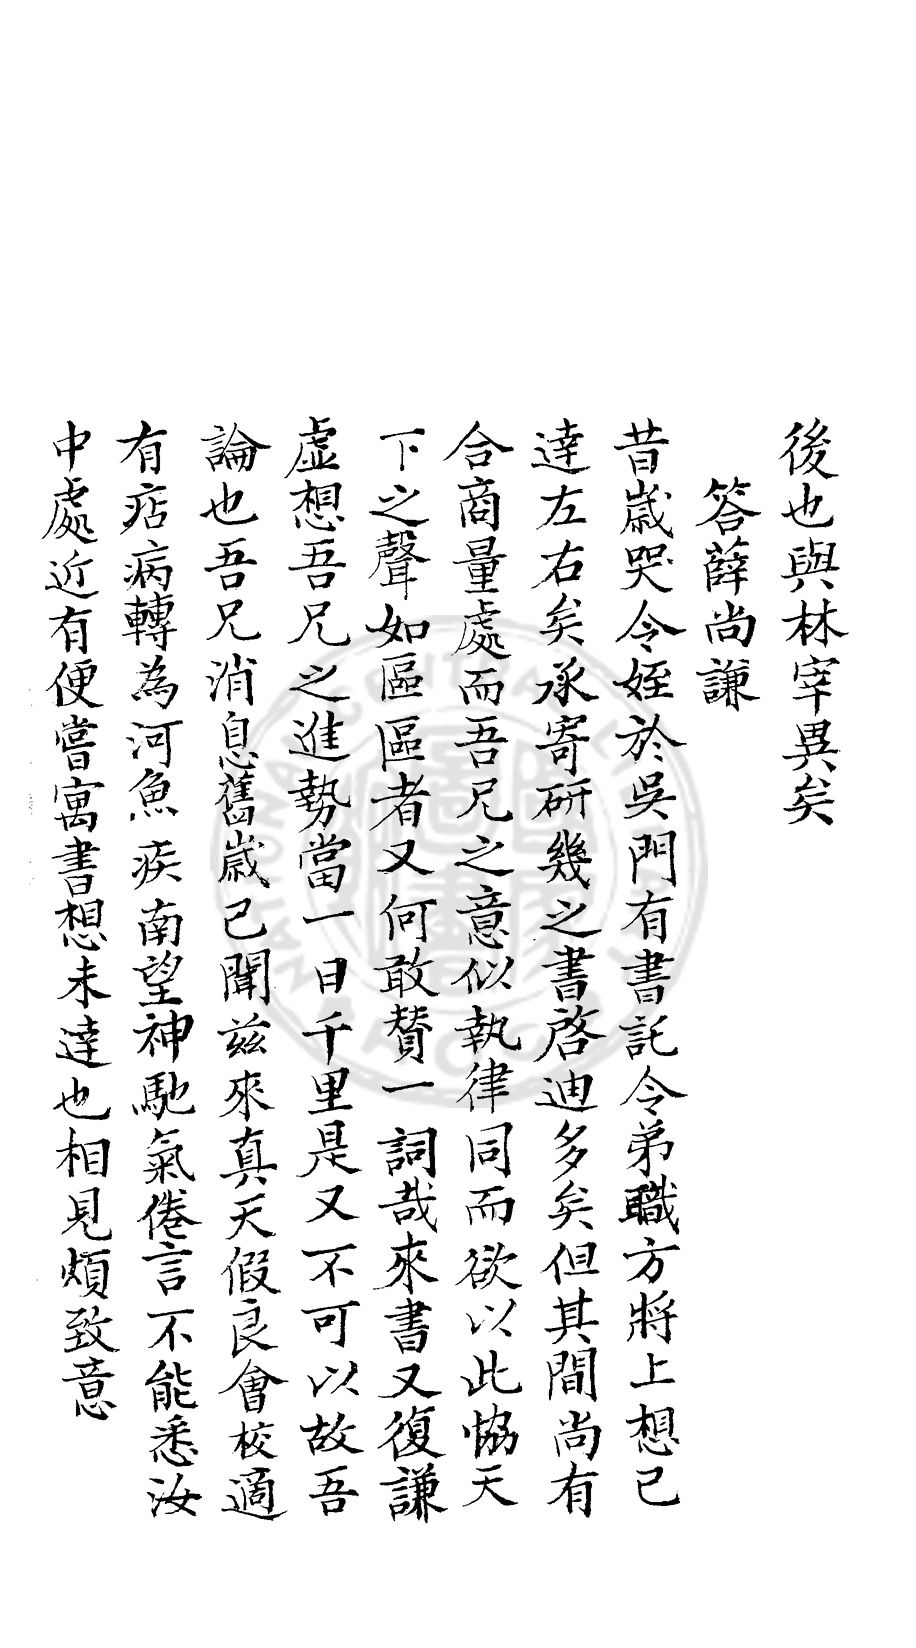 後也與林宰異矣
答薛尚謙
昔歲哭令姪於吳門有書託令弟職方將上想已
達左右矣承寄研幾之書啓迪多矣但其間尚有
合商量處而吾兄之意似執律同而欲以此恊天
下之聲如區區者又何敢贊一詞哉來書又復謙
虛想吾兄之進勢當一日千里是又不可以故吾
論也吾兄消息舊歲已聞茲來真天假良會校適
有痁病轉為河魚疾南望神馳氣倦言不能悉汝
中處近有便嘗寓書想未達也相見煩致意